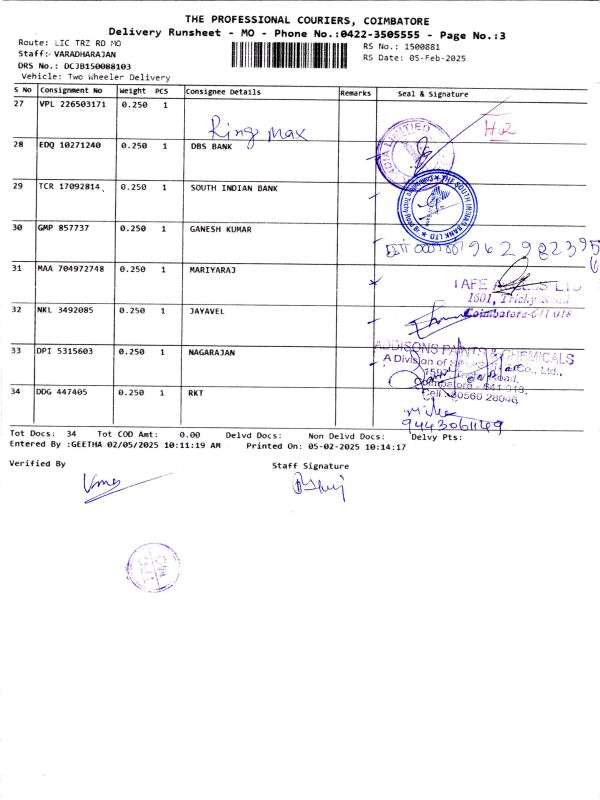 THE PROFESSIONAL COURIERS, COIMBATORE
Delivery Runsheet - MO - Phone No.:0422-3505555 - Page No.:3
Route: LIC TRZ RD MO
RS No.: 1500881
Staff: VARADHARAJAN
RS Date: 05-Feb-2025
DRS No.: DCJB150088103
Vehicle: Two Wheeler Delivery
S No Consignment No Weight PCS Consignee Details Remarks Seal & Signature
27 VPL 226503171 0.250 1
Ring Max
28 EDQ 10271240 0.250 1 DBS BANK
29 TCR 17092814 0.250 1 SOUTH INDIAN BANK
THE SOUTH INDIAN BANK LTD
30 GMP 857737 0.250 1 GANESH KUMAR
31 MAA 704972748 0.250 1 MARIYARAJ
1601, Trichy Road
Coimbatore-641 018
32 NKL 3492085 0.250 1 JAYAVEL
33 DPI 5315603 0.250 1 NAGARAJAN
ADDISONS PAINTS & CHEMICALS
A Division of Co., Ltd.,
Road,
Coimbatore - 641 018.
34 DDG 447405 0.250 1 RKT
9443061169
Tot Docs: 34 Tot COD Amt: 0.00 Delvd Docs: Non Delvd Docs: Delvy Pts:
Entered By :GEETHA 02/05/2025 10:11:19 AM Printed On: 05-02-2025 10:14:17
Verified By Staff Signature